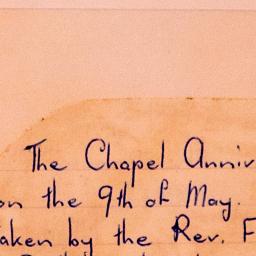 The Chapel Anniv
on the 9th of May.
aken by the Rev. F